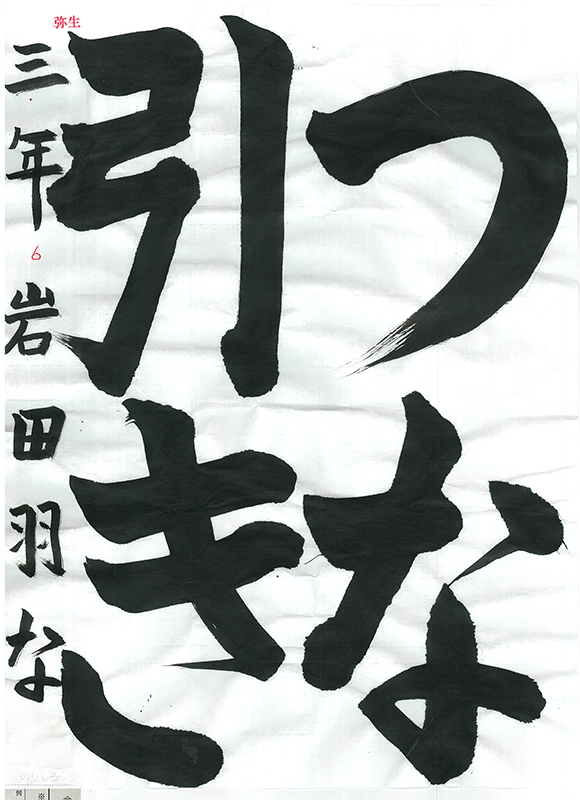 つな
引き
三年 岩田羽な
弥生
6